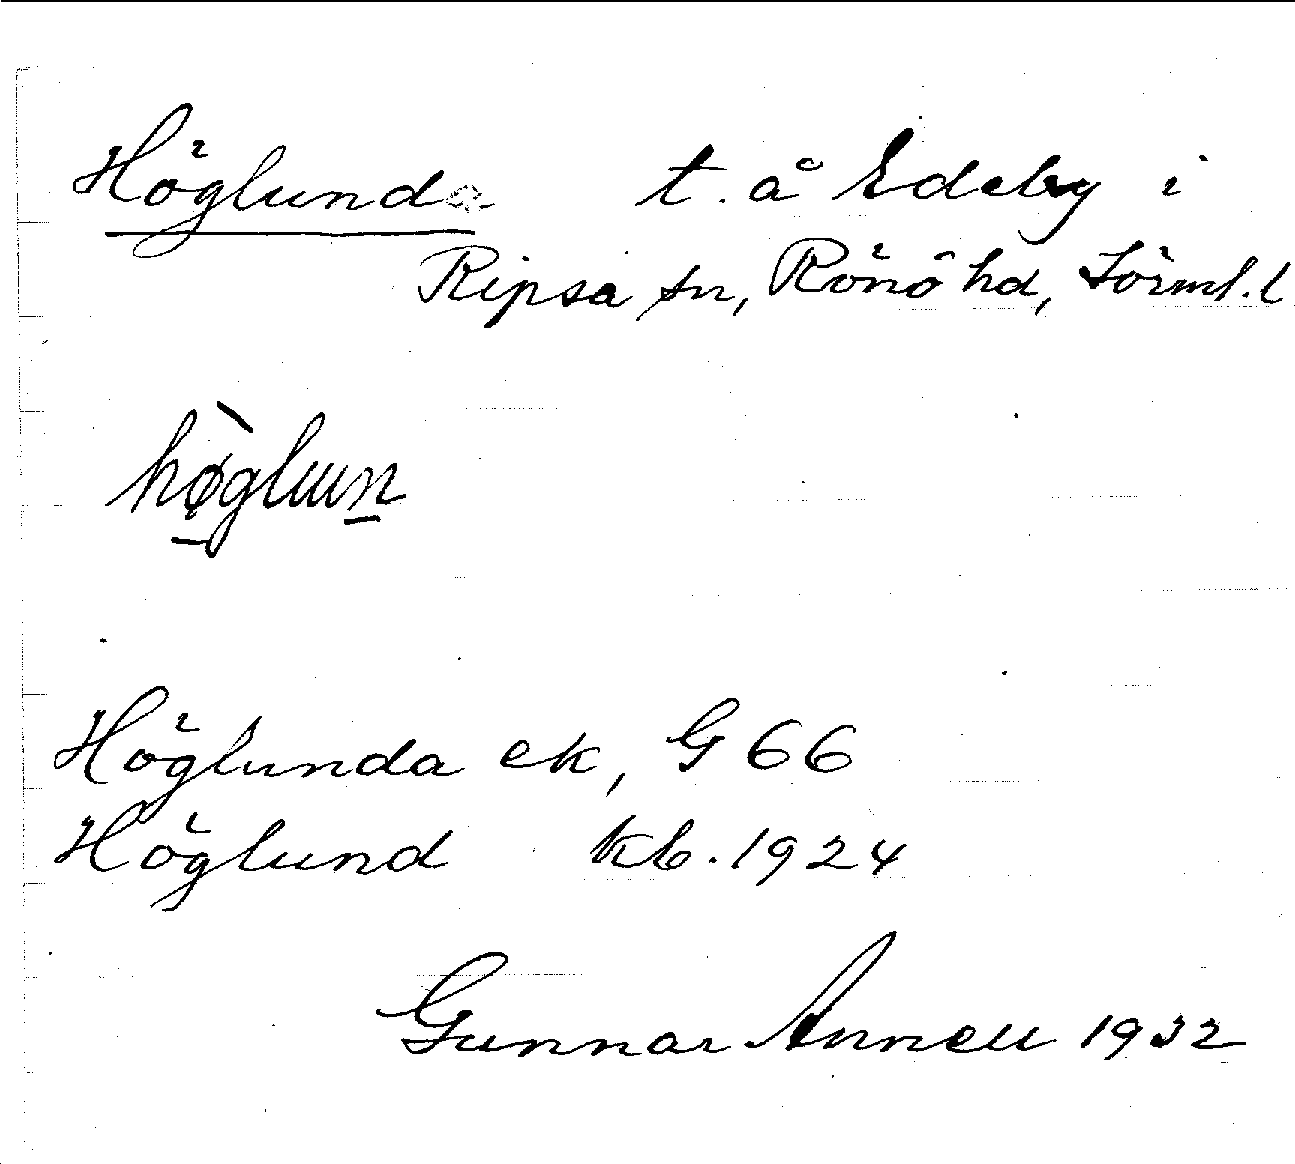 Höglunda t. å Edeby i
Ripsa sn, Rönö hd, Sörml. l
hø̀glun
Höglunda ek, G 66
Höglund kb. 1924
Gunnar Annell 1932